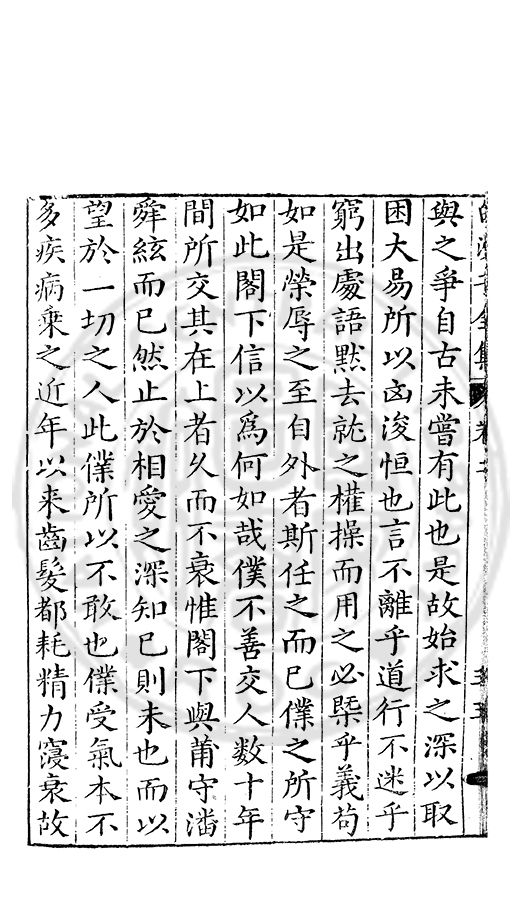 與之爭自古未嘗有此也是故始求之深以取
困大易所以凶浚恒也言不離乎道行不迷乎
窮出處語默去就之權操而用之必槩乎義苟
如是榮辱之至自外者斯任之而已僕之所守
如此閣下信以爲何如哉僕不善交人数十年
間所交其在上者久而不衰惟閣下與莆守潘
舜絃而已然止於相愛之深知已則未也而以
望於一切之人此僕所以不敢也僕受氣本不
多疾病乗之近年以来齒髮都耗精力寖衰故